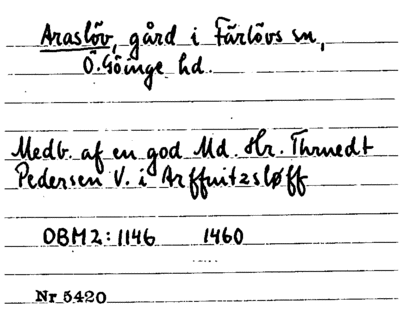 Araslöv, gård i Färlövs sn,
Ö. Göinge hd.
Medb. af en god Md. Hr. Thrnedt
Pedersen V. i Arffuitzsløff
OBM 2: 1146 1460
Nr 5420